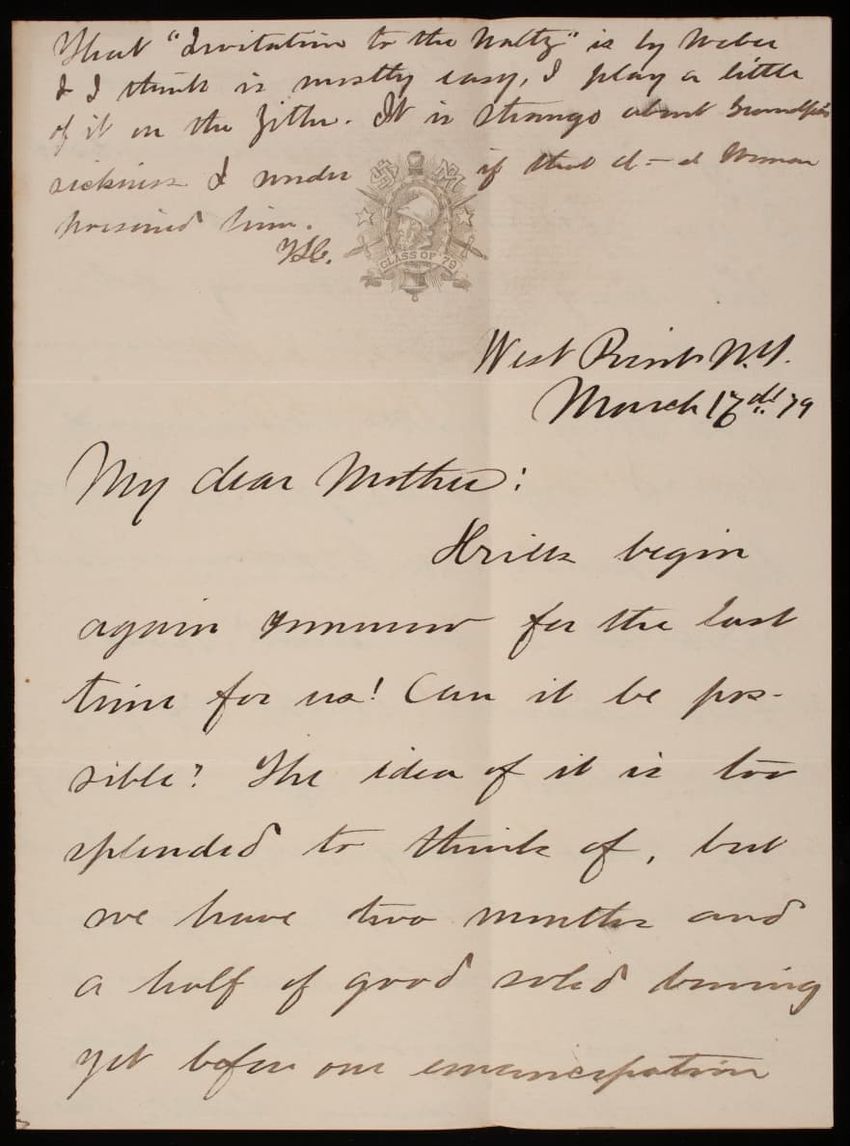 That "Invitation to the Waltz" is by Weber
& I think is mostly easy, I play a little
of it on the Zither. It is strange about Grandpa's
sickness I wonder if that d–d Woman
poisoned him.
CLASS OF '79
West Point N.Y.
March 17 '79
My dear Mother:
Drills begin
again tomorrow for the last
time for us! Can it be pos-
sible? The idea of it is too
splended to think of, but
we have two months and
a half of good solid boning
yet before our emancipation